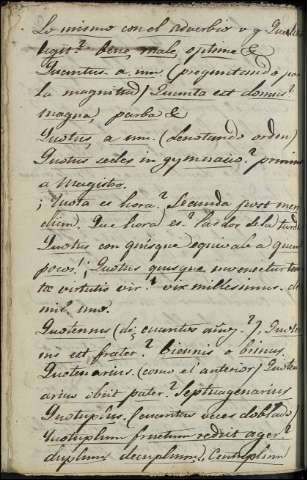 Lo mismo con el adverbio v g Quo
legit? bene, male, optime &
Quantus a um (preguntando por
la magnitud) Quanta est domus
magna, parba &
Quotus, a um (denotando orden)
Quotus sedes in gymnasio? primus
a Magistro.
¿Quota es hora? Secunda post meri
diem. Que hora es? las dos de la tarde
Quotus con quisque equivale a quan
pocos!; Quotus quisque invenitur tan
tæ virtutis vir? vix millesimus. de
mil uno.
Quotennis (de cuantos años?) Quoten
nis est frater? biennis o bimus
Quotenarius. (como el anterior) Quoten
arius obiit pater? Septuagenarius
Quotuplus. (cuantas veces doblado)
Quotuplum fructum reddit ager?
duplum, decuplum, Centuplum